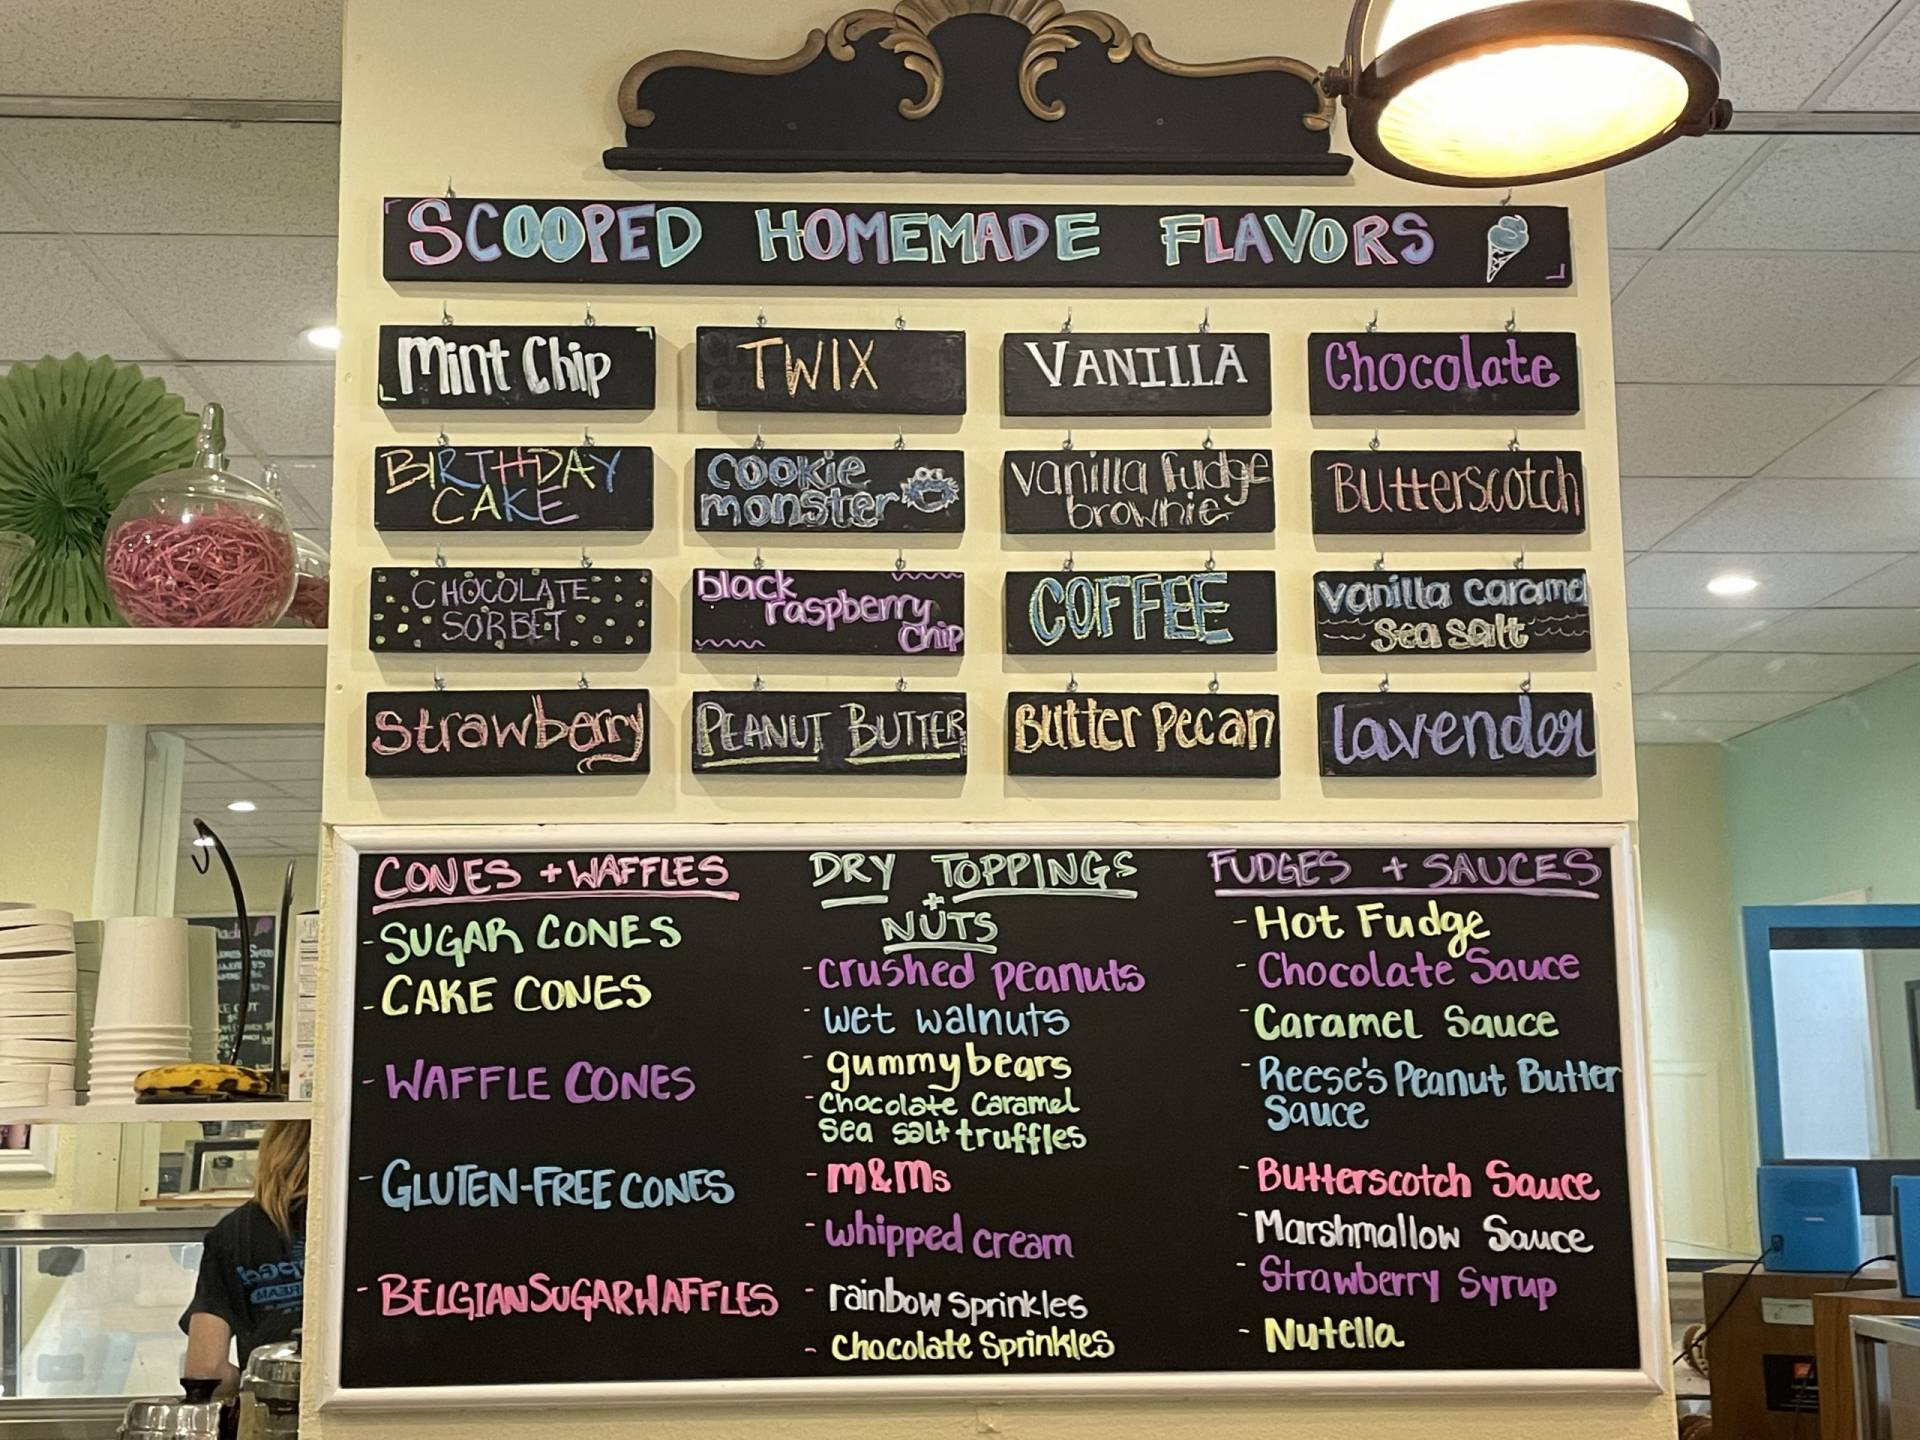 SCOOPED HOMEMADE FLAVORS
Mint Chip
TWIX
VANILLA
Chocolate
BIRTHDAY
CAKE
cookie
monster
vanilla fudge
brownie
Butterscotch
CHOCOLATE
SORBET
black
raspberry
chip
COFFEE
vanilla caramel
sea salt
strawberry
PEANUT BUTTER
Butter Pecan
lavender
CONES + WAFFLES
- SUGAR CONES
- CAKE CONES
- WAFFLE CONES
- GLUTEN-FREE CONES
- BELGIAN SUGAR WAFFLES
DRY TOPPINGS
+
NUTS
- crushed peanuts
- wet walnuts
- gummy bears
- Chocolate Caramel
sea salt truffles
- m&ms
- whipped cream
- rainbow sprinkles
- Chocolate Sprinkles
FUDGES + SAUCES
- Hot Fudge
- Chocolate Sauce
- Caramel Sauce
- Reese's Peanut Butter
Sauce
- Butterscotch Sauce
- Marshmallow Sauce
- Strawberry Syrup
- Nutella